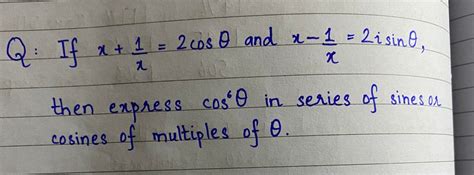 Q: If x + 1/x = 2cosθ and x - 1/x = 2i sinθ,
then express cos⁶θ in series of sines or
cosines of multiples of θ.